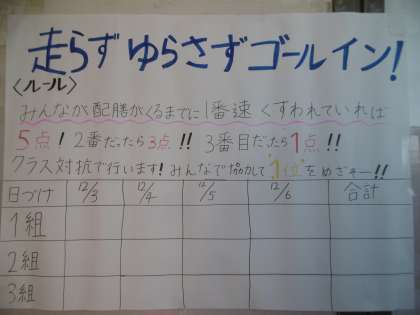 走らずゆらさずゴールイン!
〈ルール〉
みんなが配膳がくるまでに1番速くすわれていれば
5点! 2番だったら3点!! 3番目だったら1点!!
クラス対抗で行います! みんなで協力して1位をめざそー!!
日づけ 12/3 12/4 12/5 12/6 合計
1組
2組
3組